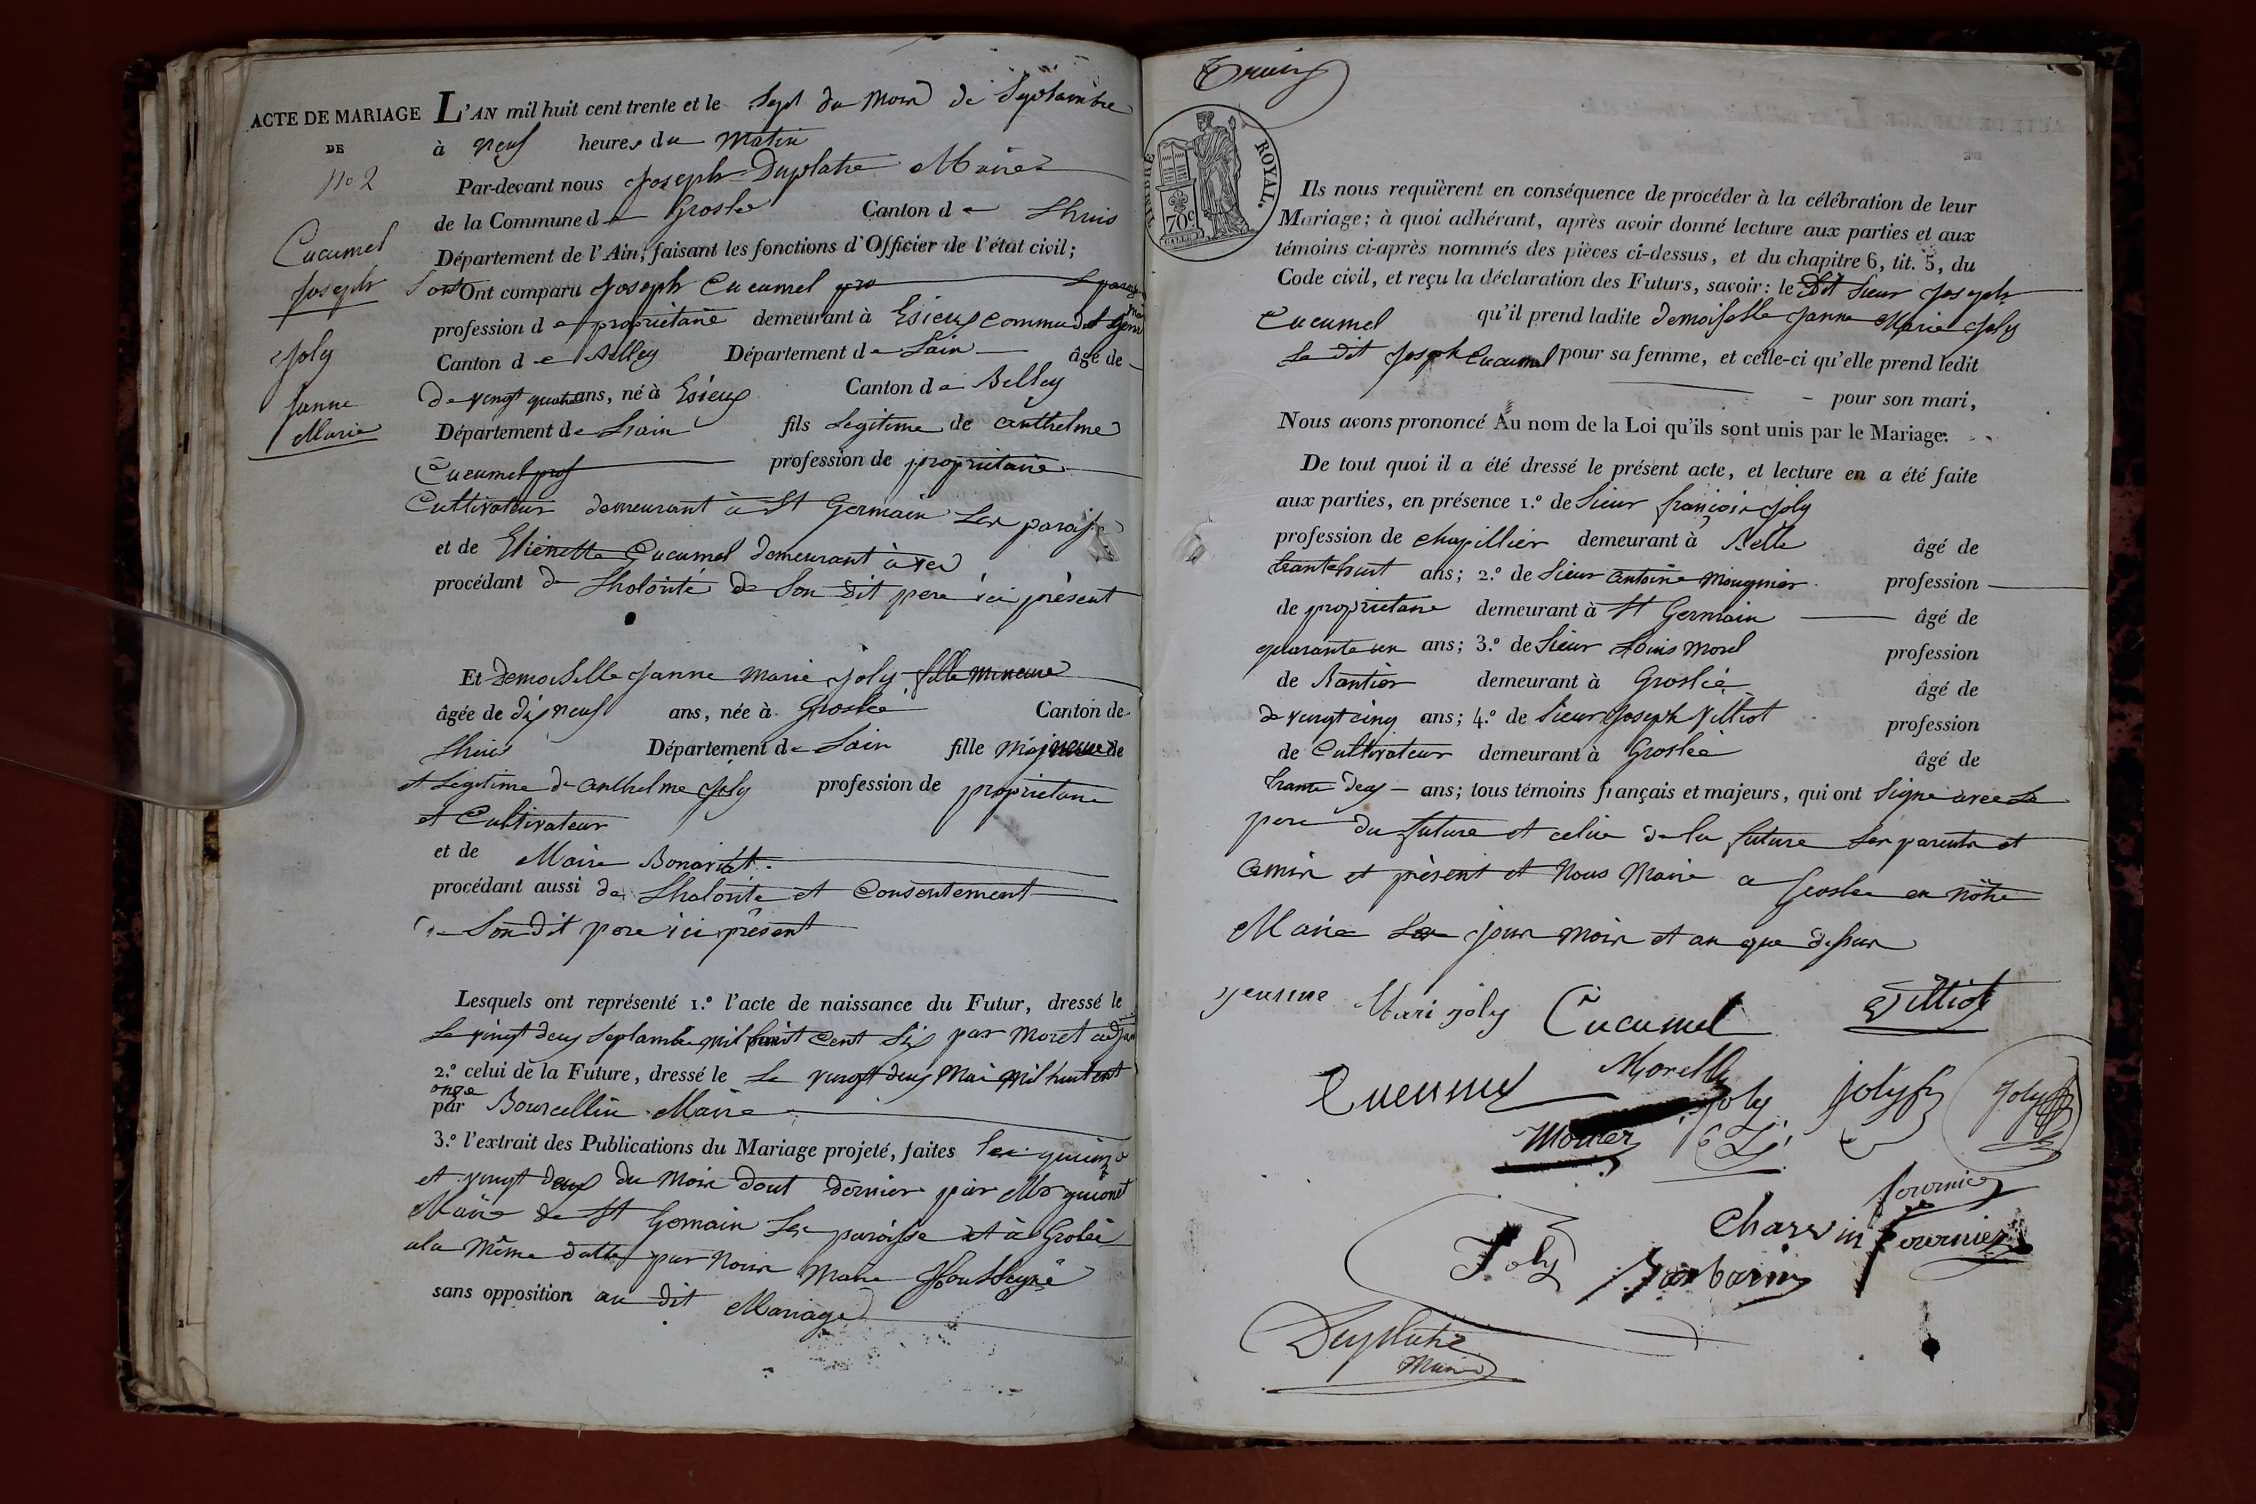 ACTE DE MARIAGE
DE
No 2
Cucumel
Joseph
Joly
Janne
Marie
L'AN mil huit cent trente et le Sept du Mois de Septambre
à neuf heures du Matin
Par-devant nous Joseph Duplatre Maire
de la Commune de Groslée Canton de Lhuis
Département de l'Ain, faisant les fonctions d'Officier de l'état civil;
Sont Ont comparu Joseph Cucumel
profession de proprietaire demeurant à Esieux commune de St Germ
Canton de Belley Département de Lain âgé de
De vingt quatre ans, né à Esieux Canton de Belley
Département de Lain fils Legitime de anthelme
Cucumel profession de proprietaire
Cultivateur demeurant à St Germain Les paroisse
et de Etienette Cucumel demeurant à
procédant de Lhotorité de Son dit pere ici présent
Et demoiselle Janne Marie Joly fille mineure
âgée de dix neuf ans, née à Groslée Canton de
Lhuis Département de Lain fille de
et Legitime de anthelme Joly profession de proprietaire
et Cultivateur
et de Marie Bonardet
procédant aussi de Lhotorite et Consentement
de Son dit pere ici présent
Lesquels ont représenté 1.º l'acte de naissance du Futur, dressé le
Le vingt deux Septambre mil huit cent Six par Moret adjoint
2.º celui de la Future, dressé le Le vingt deux Mai mil huit cent
onze
par Bourcellin Maire
3.º l'extrait des Publications du Mariage projeté, faites les quinze
et vingt deux du Mois dout dernier par Mr guionet
Maire de St Germain Les paroisse et à Grolée
a la Même datte par Nous Maire Soussigné
sans opposition au dit Mariage
TIMBRE ROYAL.
70c
Ils nous requièrent en conséquence de procéder à la célébration de leur
Mariage; à quoi adhérant, après avoir donné lecture aux parties et aux
témoins ci-après nommés des pièces ci-dessus, et du chapitre 6, tit. 5, du
Code civil, et reçu la déclaration des Futurs, savoir: le Dit Sieur Joseph
Cucumel qu'il prend ladite demoiselle Janne Marie Joly
Le dit Joseph Cucumel pour sa femme, et celle-ci qu'elle prend ledit
pour son mari,
Nous avons prononcé Au nom de la Loi qu'ils sont unis par le Mariage.
De tout quoi il a été dressé le présent acte, et lecture en a été faite
aux parties, en présence 1.º de Sieur françois Joly
profession de chapillier demeurant à Belle âgé de
trante huit ans; 2.º de Sieur antoine Mougnier profession
de proprietaire demeurant à St Germain âgé de
quarante un ans; 3.º de Sieur Louis Morel profession
de Rantier demeurant à Groslée âgé de
de vingt cinq ans; 4.º de Sieur Joseph Villiot profession
de Cultivateur demeurant à Groslée âgé de
trante deux ans; tous témoins français et majeurs, qui ont Signé avec Le
pere du future et celui de la future Les parents et
amis et présent et Nous Maire a Groslée en nôtre
Mairie Les jour mois et an que dessus
jeanne Mari joly Cucumel Villiot
Cucumel Morel Joly Joly fs Joly
fournier
Charvin fournier
Joly Barbarin
Duplatre
Maire